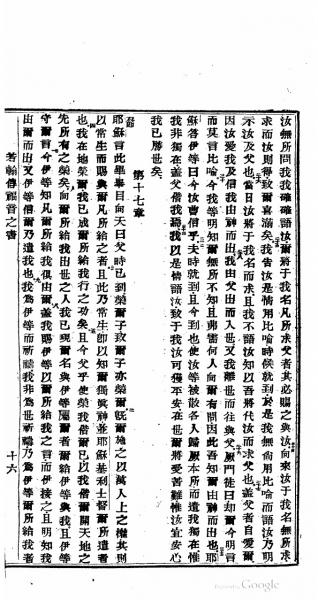 汝無所問我我確確語汝爾將于我名凡所求父者其必賜之與汝向來汝于我名無所求
求而汝則得致爾喜滿矣我告汝是情用比喻時候就到於是我無尙用比喻而語汝乃明
示汝及父也當日汝將于我名而求且我不語汝知以吾將代汝而求父也蓋父者自愛爾
因汝愛我及信我由神而出我由父出而入世又我離世而往與父厥門徒曰却爾今明言
而莫言比喻今我等明知爾無所不知且弗需何人向爾有問因此吾知爾由神而出也耶
穌答伊等曰今汝曹信乎夫時就到且今到也使汝等被散各人歸厥本所而遺我獨在惟
我非獨在蓋父偕我焉我以是情語汝致于我汝可獲平安在世爾將受苦難惟汝宜安心
我已勝世矣
第十七章
耶穌言此畢舉目向天曰父時已到榮爾子致爾子亦榮爾旣爾施之以萬人上之權其則
以常生而賜與爾凡所給之者且此乃常生卽以知爾獨眞神並耶穌基利士督爾所遣者
也我在地榮爾我已成爾所給我行之功矣且今父乎使榮我偕爾已以我偕爾開天地之
先所有之榮矣向爾所給我出世之人我已現爾名與伊等屬爾者爾給伊等與我且伊等
守爾言今伊知凡爾所給我俱由爾蓋我賜伊等以爾所賜我之言而伊接之且明知我
由爾而出又伊等信爾乃遣我也我爲伊等而祈禱我非爲世祈禱乃爲伊等爾所給我者
若翰傳福音之書
十六
Google